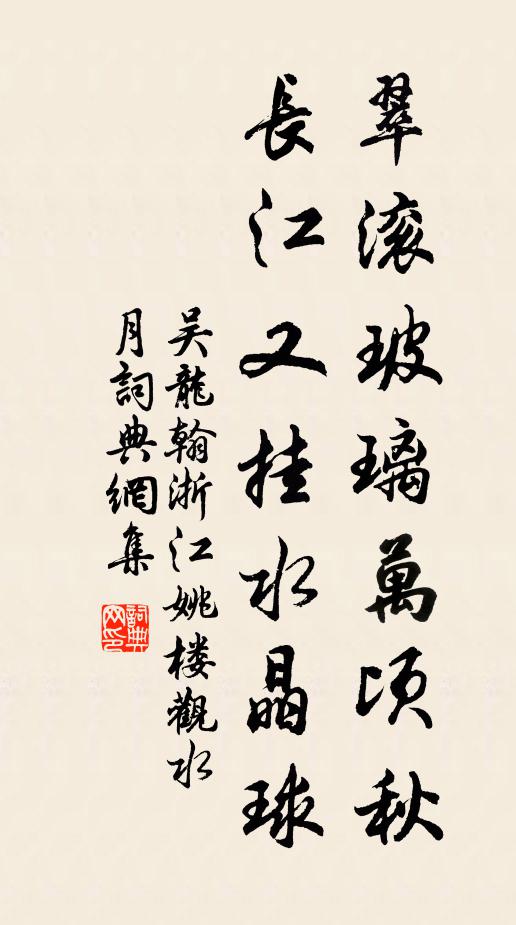 翠滚玻璃萬頃秋
長江又挂水晶球
吴龍翰浙江姚楼觀水
月詞典網集
詞典网印